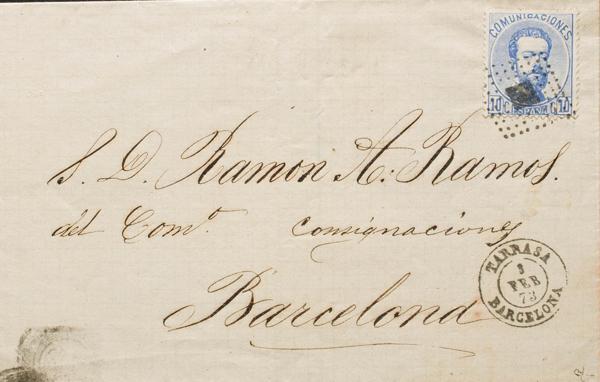 COMUNICACIONES
10 C. ESPAÑA C. 10
S. D. Ramon A. Ramos.
del Com.º consignaciones
Barcelona
TARRASA
3
FEB
73
BARCELONA